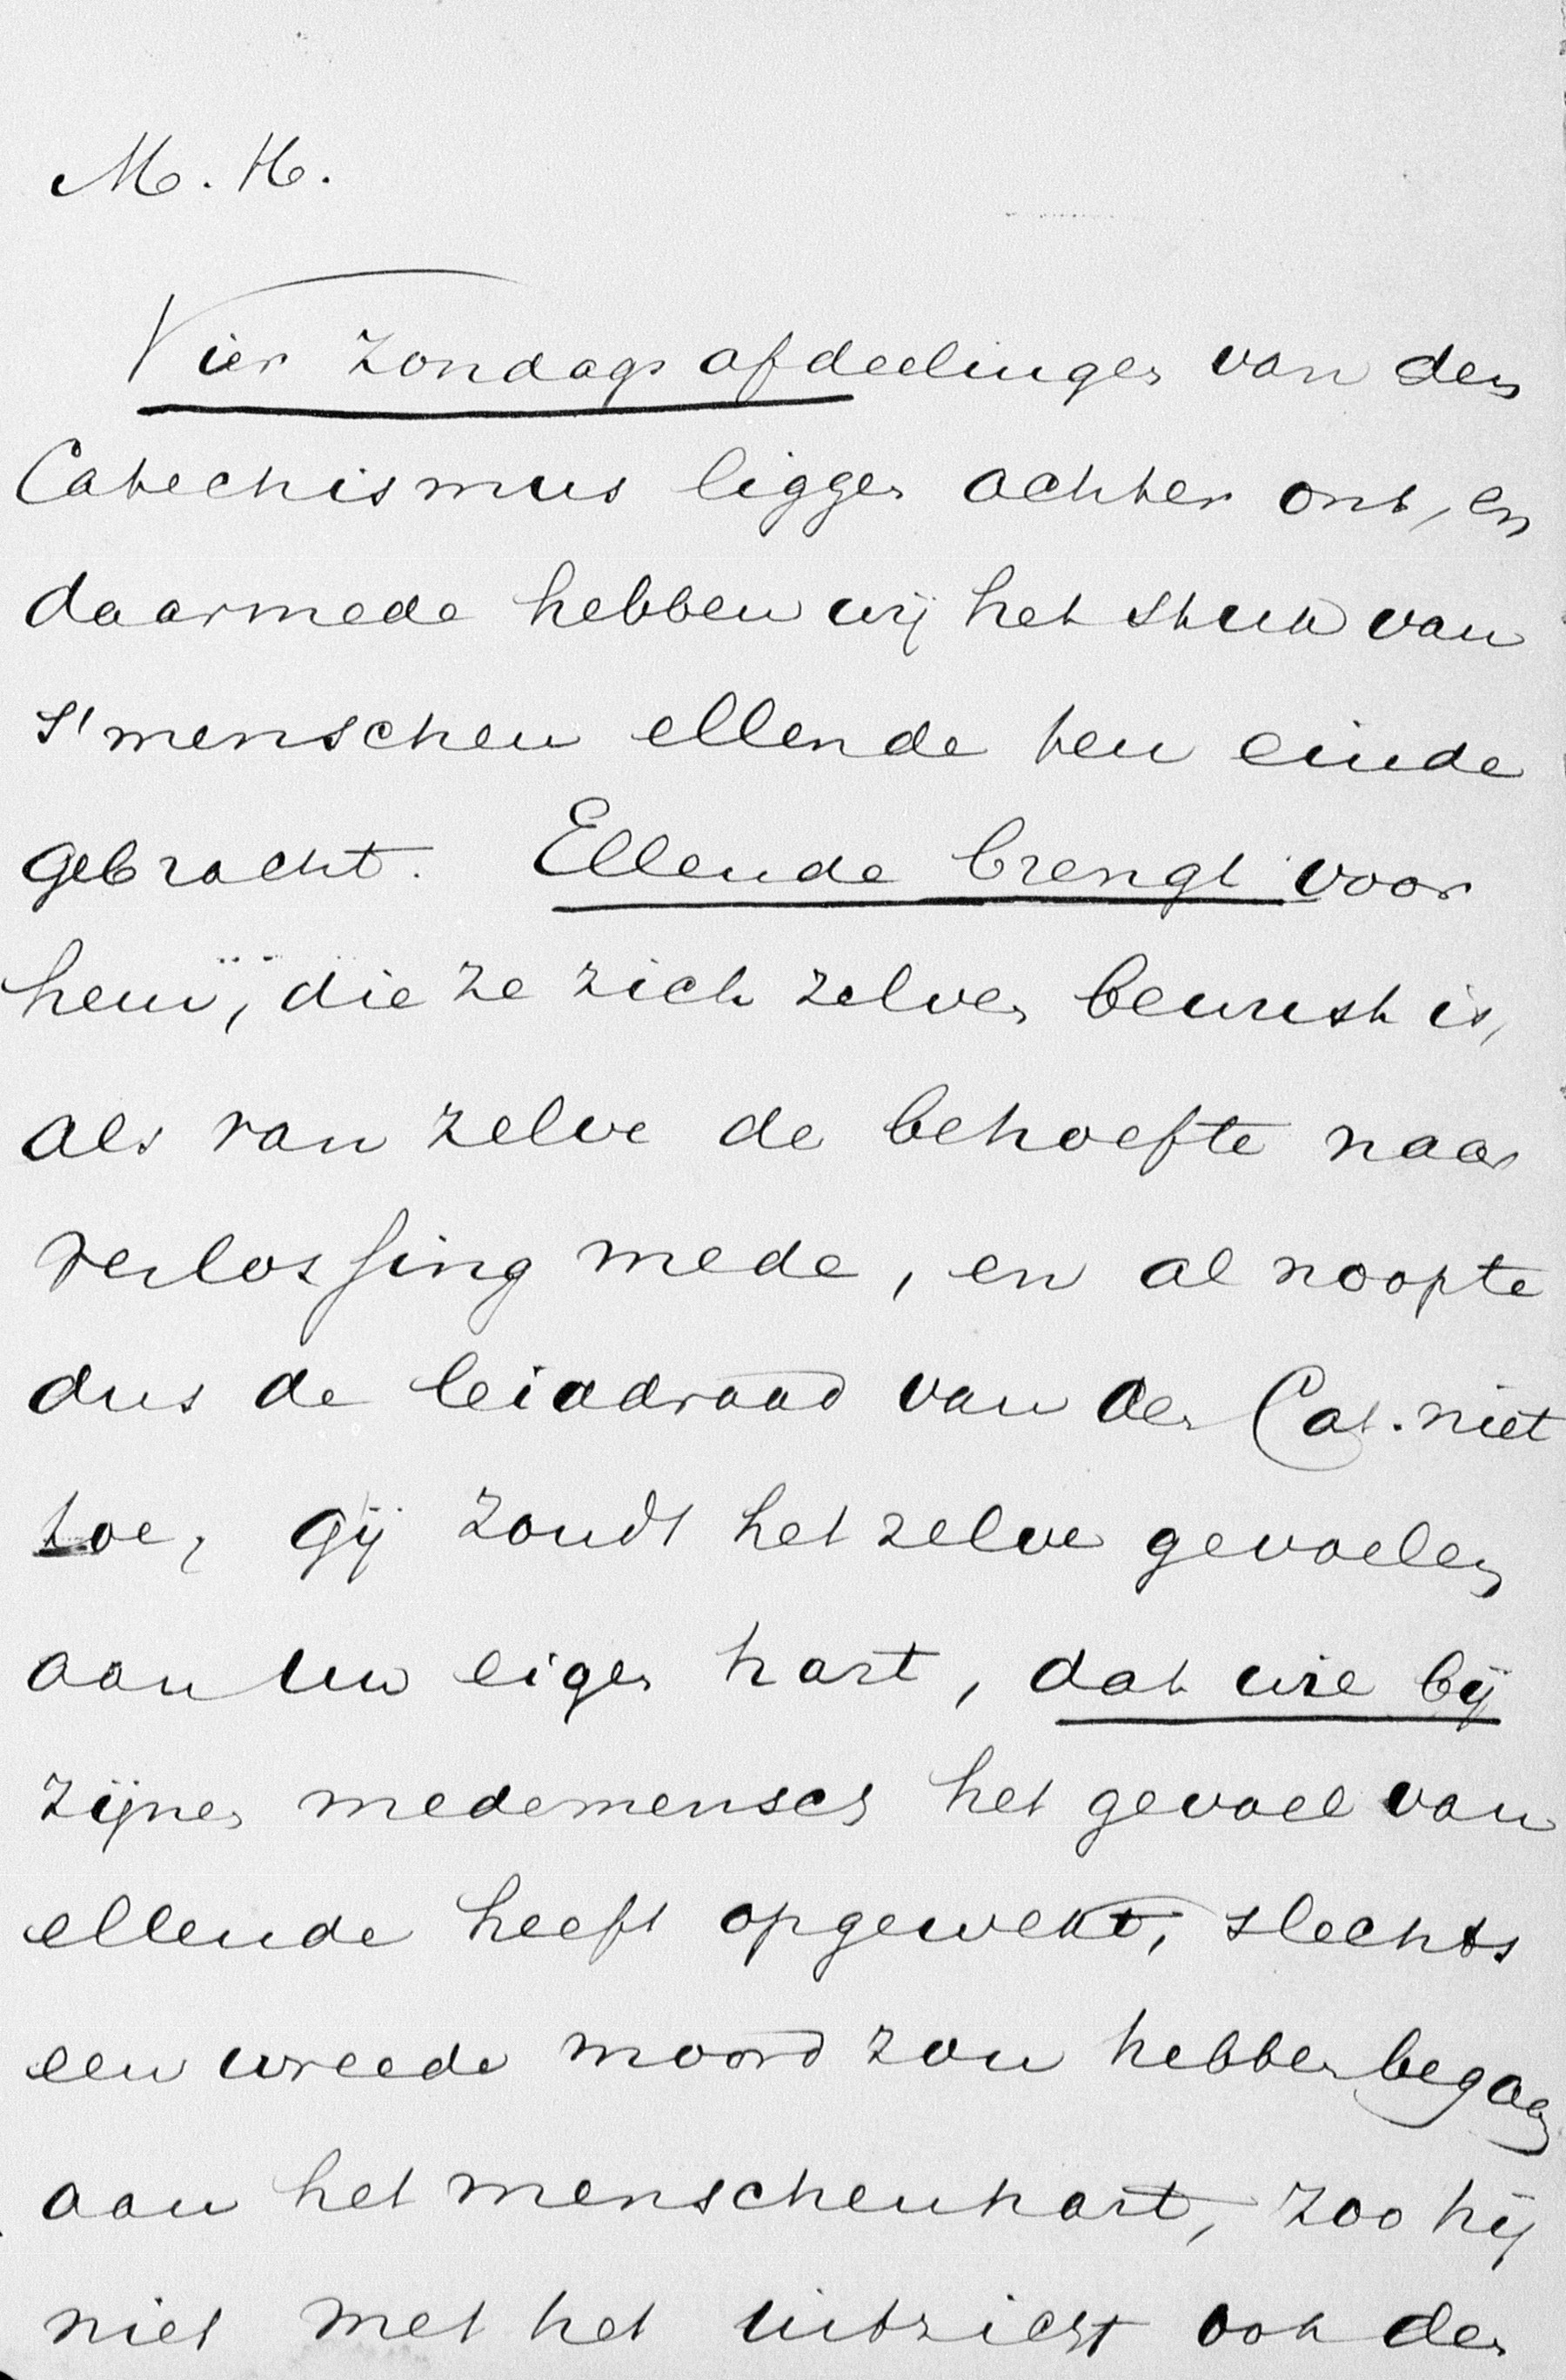 M. H.
Vier Zondags afdeelingen van den
Catechismus liggen achter ons, en
daarmede hebben wij het stuk van
s'menschen ellende ten einde
gebracht. Ellende brengt voor
hem, die ze zich zelven bewust is,
als van zelve de behoefte naar
verlossing mede, en al noopte
dus de leiddraad van den Cat. niet
toe, gij zoudt het zelve gevoelen
aan Uw eigen hart, dat wie bij
zijnen medemensch het gevoel van
ellende heeft opgewekt, slechts
een wreede moord zou hebben begaan
aan het menschenhart, zoo hij
niet met het uitzicht ook den